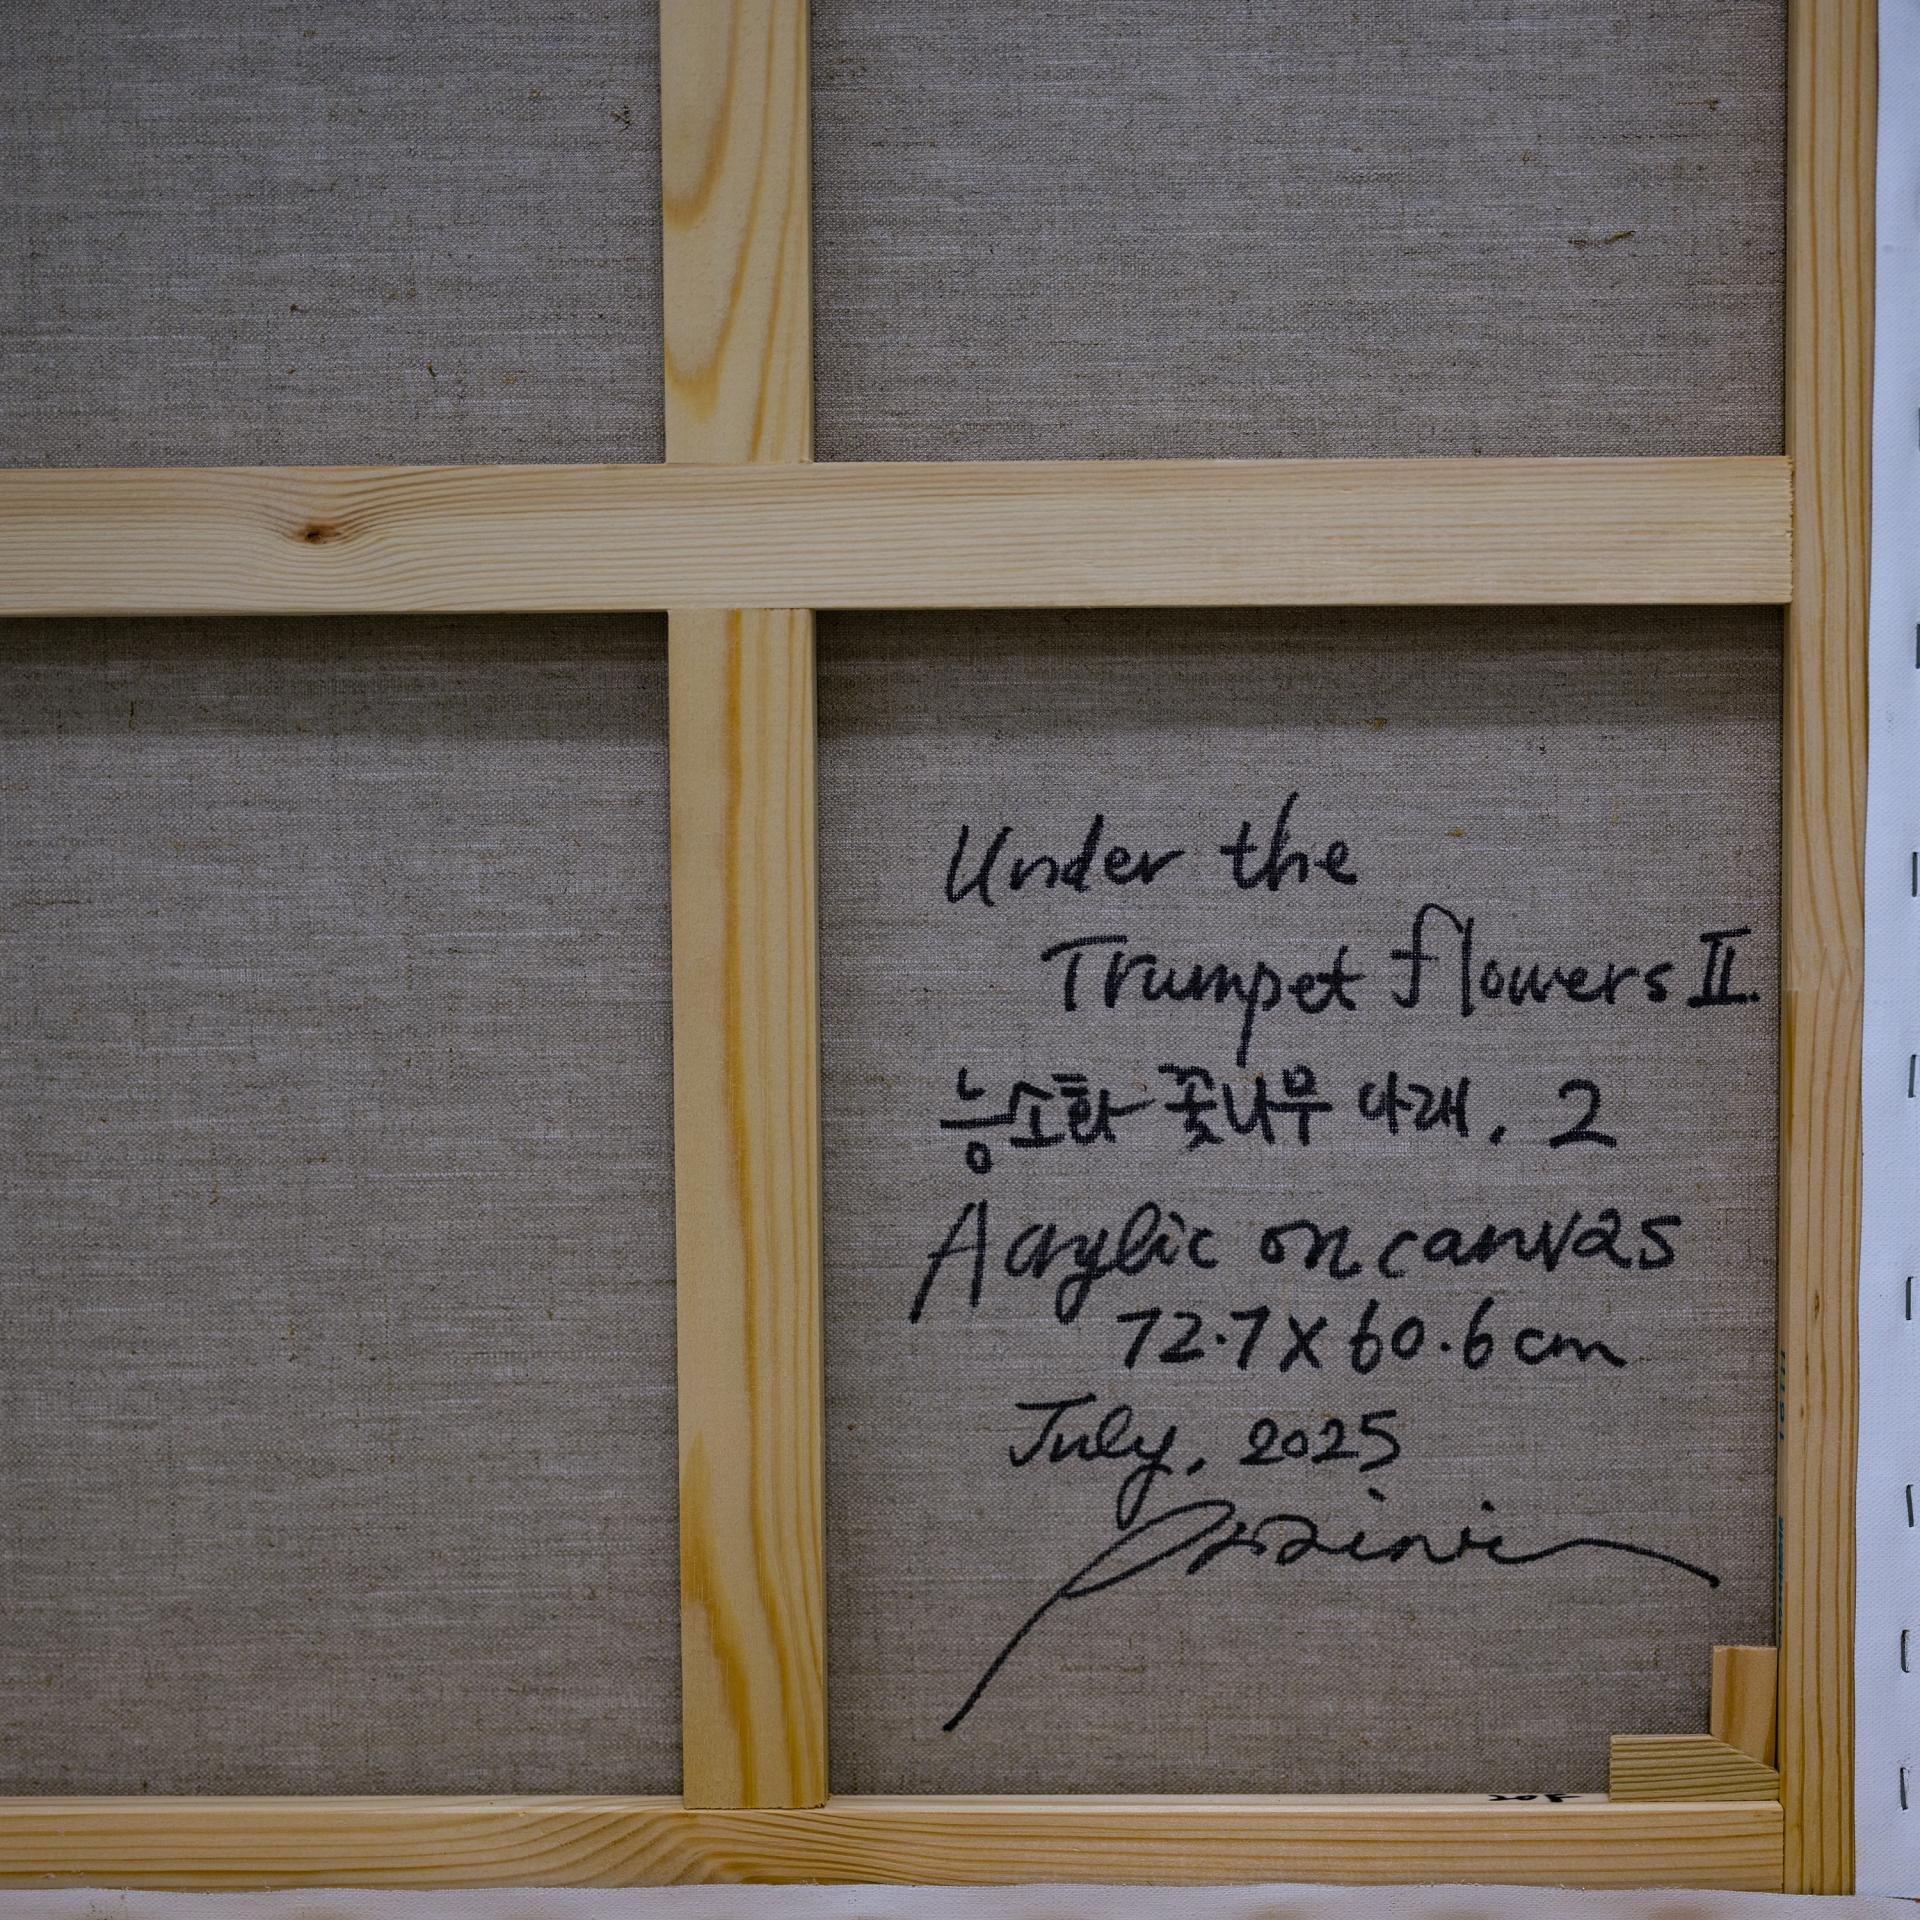 Under the
Trumpet flowers II.
능소화 꽃나무 아래, 2
Acrylic on canvas
72.7 X 60.6 cm
July, 2025